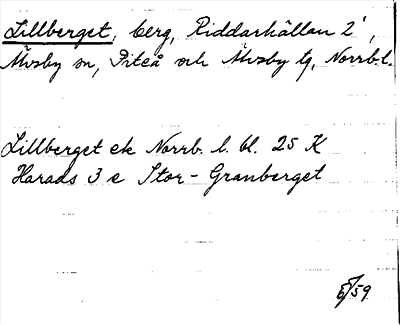 Lillberget, berg, Riddarhällan 2',
Älvsby sn, Piteå och Älvsby tg, Norrb. l.
Lillberget ek Norrb. l. bl. 25 K
Harads 3 e Stor-Granberget
/59